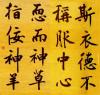 斯衣德不
稱服中心
而神草
指佞神羊